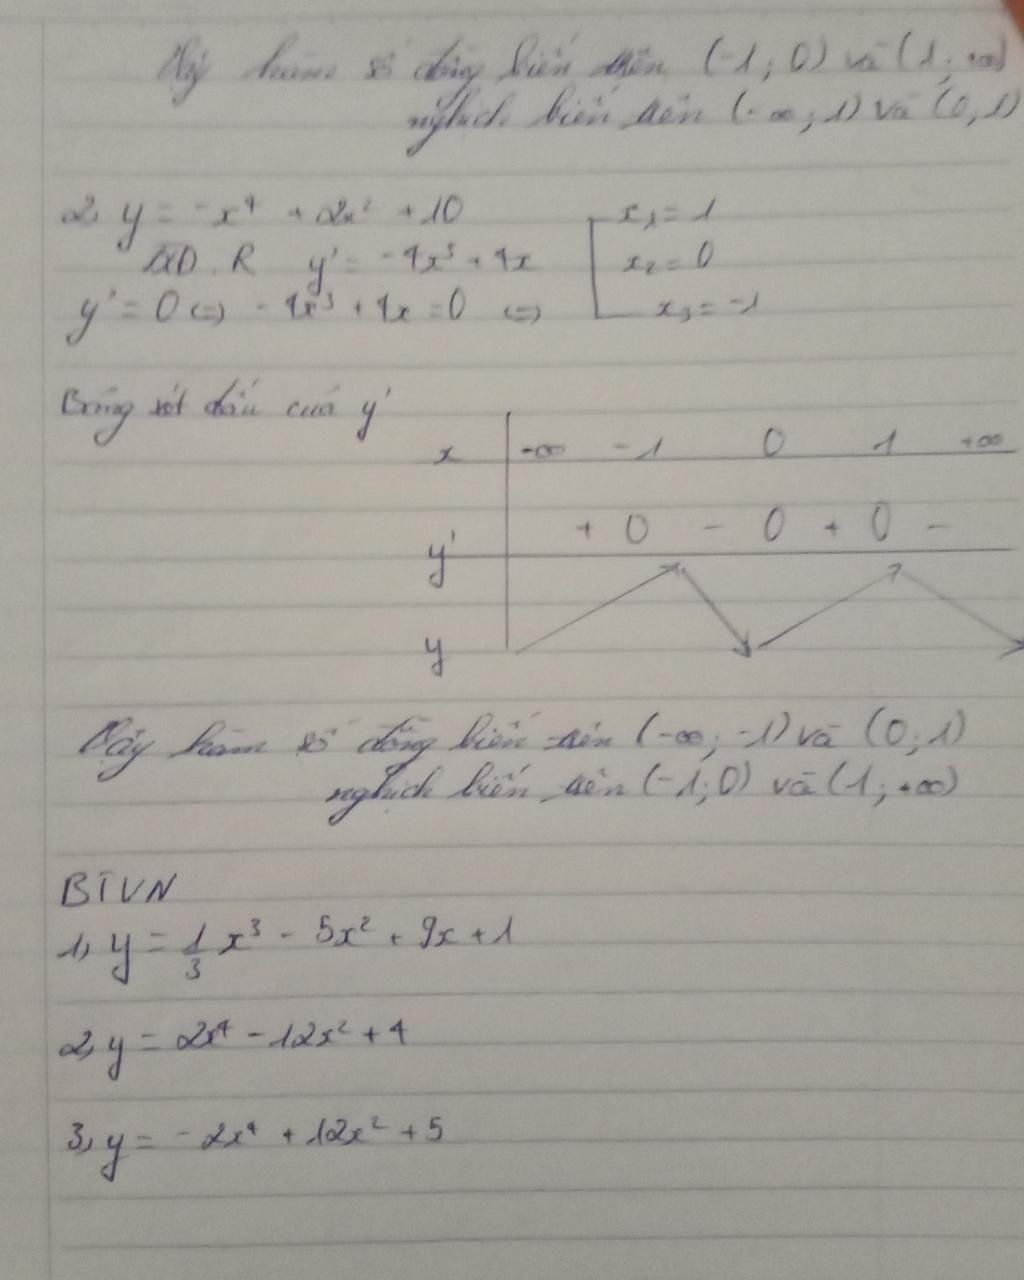 Vậy hàm số đồng biến trên (-1; 0) và (1; +∞)
nghịch biến trên (-∞; 1) và (0, 1)
2, y = -x⁴ + 2x² + 10
TXD. R y' = -4x³ + 4x
y' = 0 (=) -4x³ + 4x = 0 (=) [ x₁ = 1
x₂ = 0
x₃ = -1
Bảng xét dấu của y'
x -∞ -1 0 1 +∞
y' + 0 - 0 + 0 -
y
Vậy hàm số đồng biến trên (-∞; -1) và (0; 1)
nghịch biến trên (-1; 0) và (1; +∞)
BTVN
1, y = 1/3 x³ - 5x² + 9x + 1
2, y = 2x⁴ - 12x² + 4
3, y = -2x⁴ + 12x² + 5